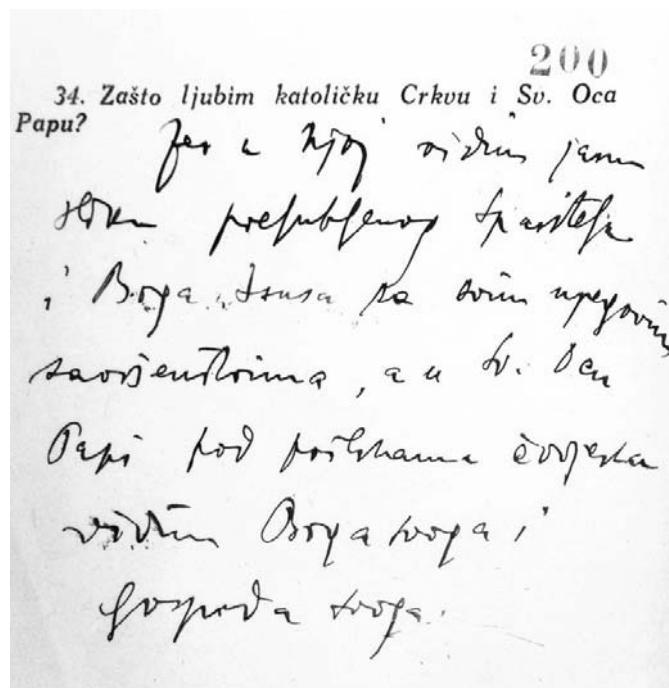 200
34. Zašto ljubim katoličku Crkvu i Sv. Oca
Papu?
Jer u Njoj vidim jasnu
sliku preljubljenog Spasitelja
i Boga Isusa sa svim njegovim
savršenstvima, a u Sv. Ocu
Papi pod prilikama čovjeka
vidim Boga svoga i
Gospoda svoga.